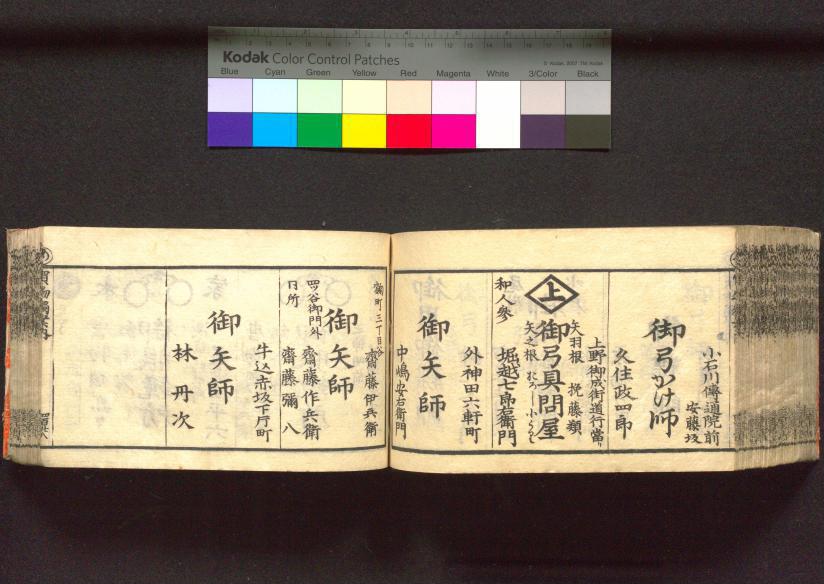 Kodak Color Control Patches
© Kodak, 2007 TM: Kodak
Blue Cyan Green Yellow Red Magenta White 3/Color Black
小石川傳通院前
安藤坂
御弓かけ師
久住政四郎
上野御成街道行當り
矢羽根 挽藤類
上 御弓具問屋
矢之根
和人參
堀越七郎右衛門
外神田六軒町
御矢師
中嶋安右衛門
麹町三丁目谷
齋藤伊兵衛
御矢師
四ッ谷御門外
齋藤作兵衛
同所
齋藤彌八
牛込赤坂下片町
御矢師
林丹次